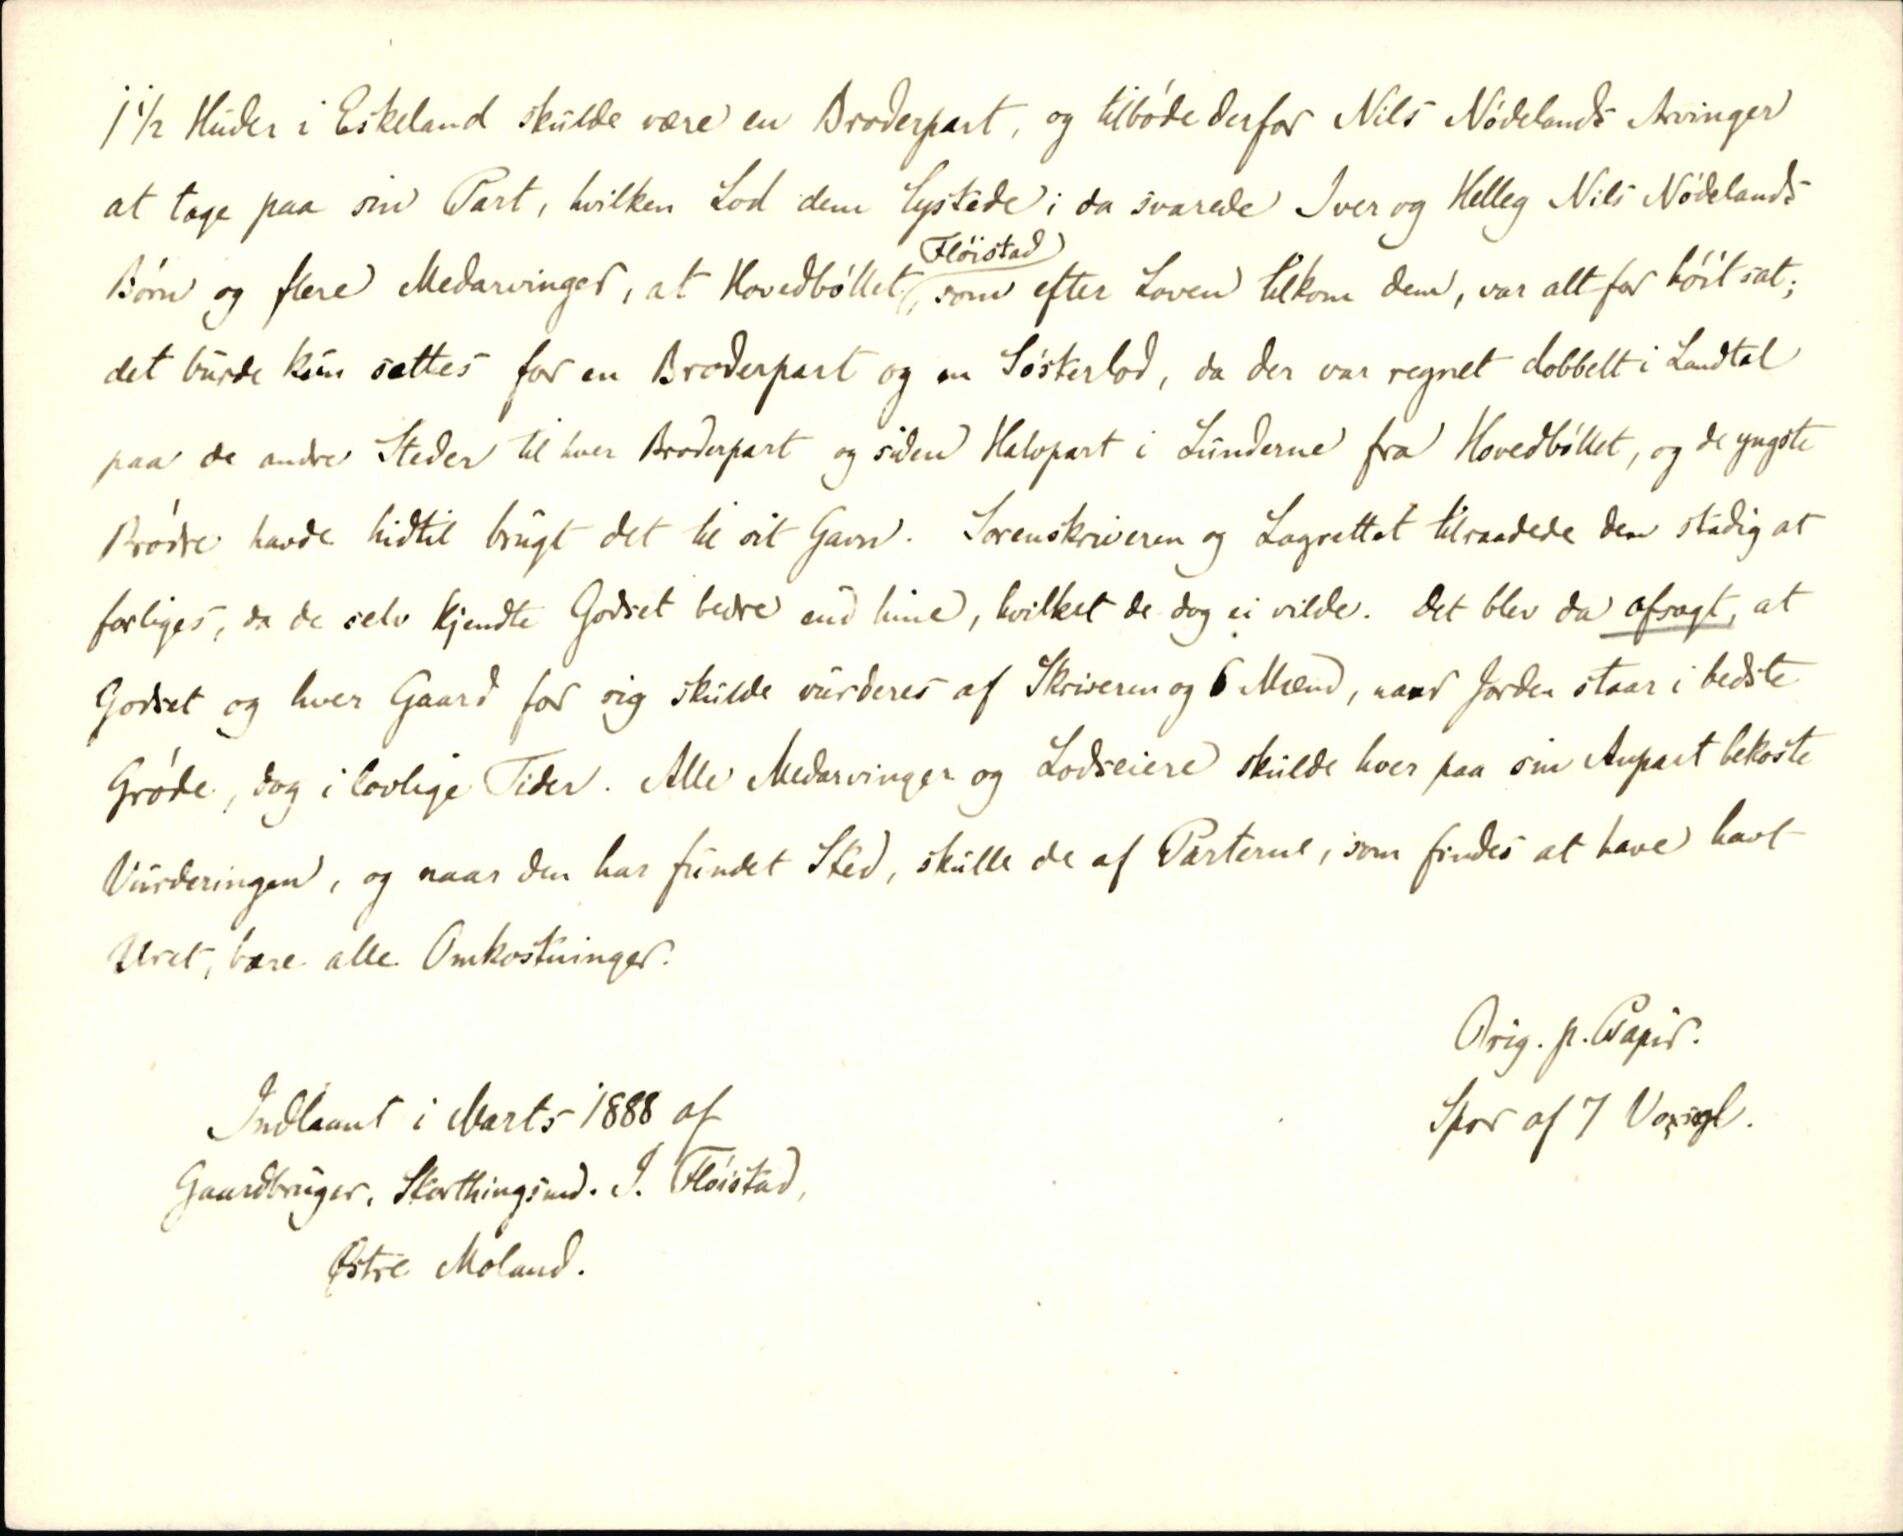 1 1/2 Huder i Eskeland skulde være en Broderpart, og tilbøde derfor Nils Nødelands Arvinger
at tage paa sin Part, hvilken Lod dem lystede; da svarede Iver og Helleg Nils Nødelands
Børn og flere Medarvinger, at Hovedbøllet (Fløistad), som efter Loven tilkom dem, var alt for høit sat;
det burde kun sættes for en Broderpart og en Søsterlod, da der var regnet dobbelt i Landtal
paa de andre Steder til hver Broderpart og siden Halvpart i Lunderne fra Hovedbøllet, og de yngste
Brødre havde hidtil brugt det til sit Gavn. Sorenskriveren og Lagrettet tilraadede dem stadig at
forliges, da de selv kjendte Godset bedre end hine, hvilket de dog ei vilde. Det blev da afsagt, at
Godset og hver Gaard for sig skulde vurderes af Skriveren og 6 Mænd, naar Jorden staar i bedste
Grøde, dog i lovlige Tider. Alle Medarvinger og Lodseiere skulde hver paa sin Anpart bekoste
Vurderingen, og naar den har fundet Sted, skulle de af Parterne, som findes at have havt
Uret, bære alle Omkostninger.
Orig. p. Papir.
Spor af 7 Voxsegl.
Indlaant i Marts 1888 af
Gaardbruger, Storthingsmd. I. Fløistad,
Østre Moland.